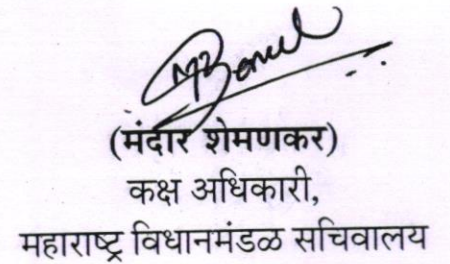 (मंदार शेमणकर)
कक्ष अधिकारी,
महाराष्ट्र विधानमंडळ सचिवालय